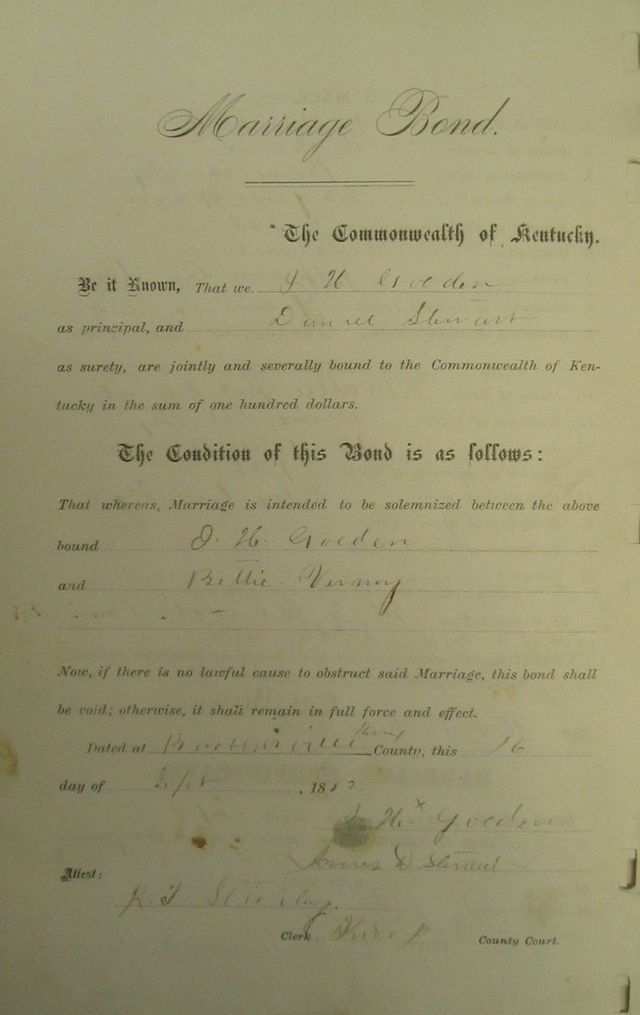 Marriage Bond.
The Commonwealth of Kentucky.
Be it Known, That we, J H Golden
as principal, and Daniel Stewart
as surety, are jointly and severally bound to the Commonwealth of Ken-
tucky in the sum of one hundred dollars.
The Condition of this Bond is as follows:
That whereas, Marriage is intended to be solemnized between the above
bound J. H. Golden
and Bettie Vernoy
Now, if there is no lawful cause to obstruct said Marriage, this bond shall
be void; otherwise, it shall remain in full force and effect.
Dated at Barbourville Knox County, this 16
day of Sept, 188
J H x Golden
Attest:
Clerk Knox County Court.